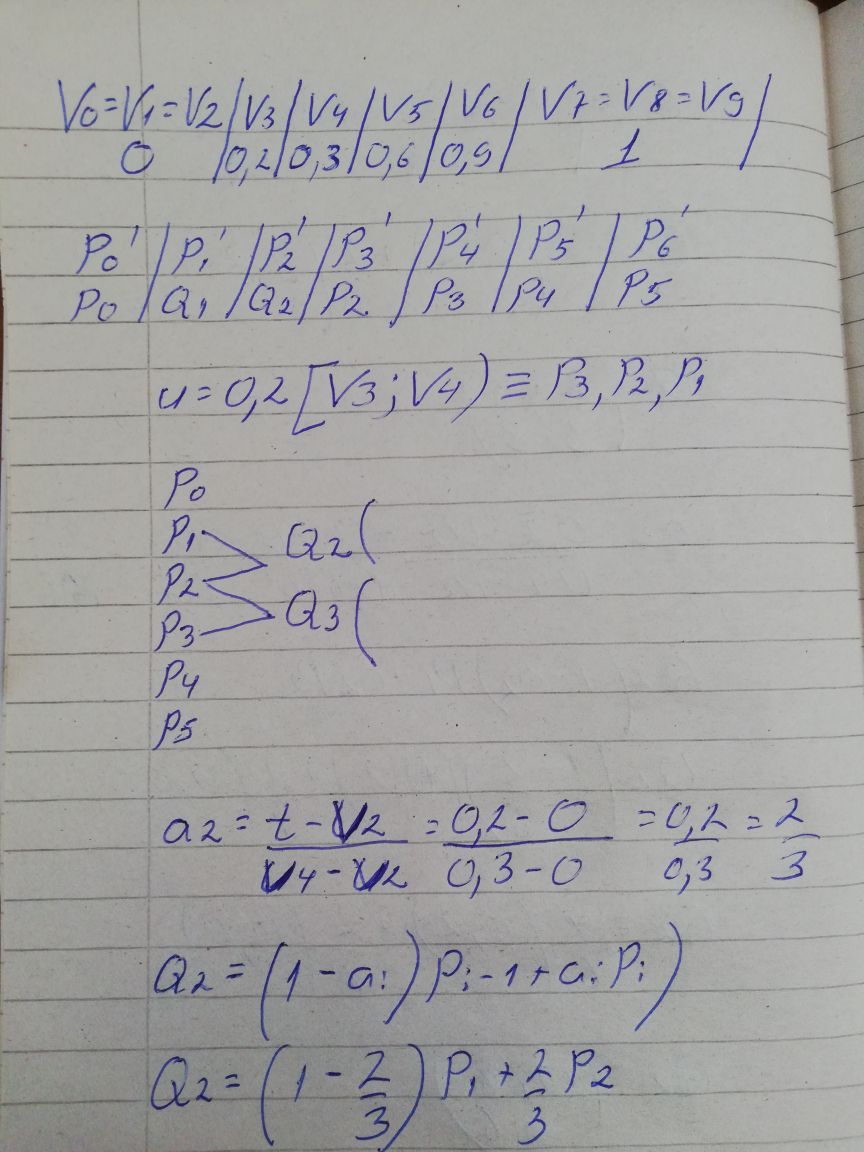 V0=V1=V2|V3|V4|V5|V6|V7=V8=V9|
0|0,2|0,3|0,6|0,9|1|
P0'|P1'|P2'|P3'|P4'|P5'|P6'
P0|Q1|Q2|P2|P3|P4|P5
u=0,2[V3;V4)≡P3,P2,P1
P0
P1
Q2(
P2
Q3(
P3
P4
P5
a2=(t-V2)/(V4-V2)=(0,2-0)/(0,3-0)=0,2/0,3=2/3
Q2=(1-ai)Pi-1+aiPi)
Q2=(1-2/3)P1+2/3P2